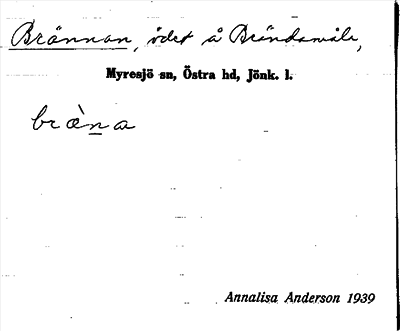 Brännan, ödet å Bråndamåla,
Myresjö sn, Östra hd, Jönk. l.
bræ̀na
Annalisa Anderson 1939